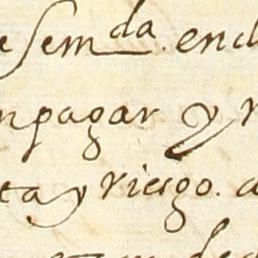 e sem da. end
n pagar y r
ta y riesgo. a